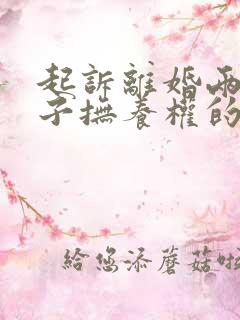 起訴離婚兩
子撫養權的
給您添蘑菇啦